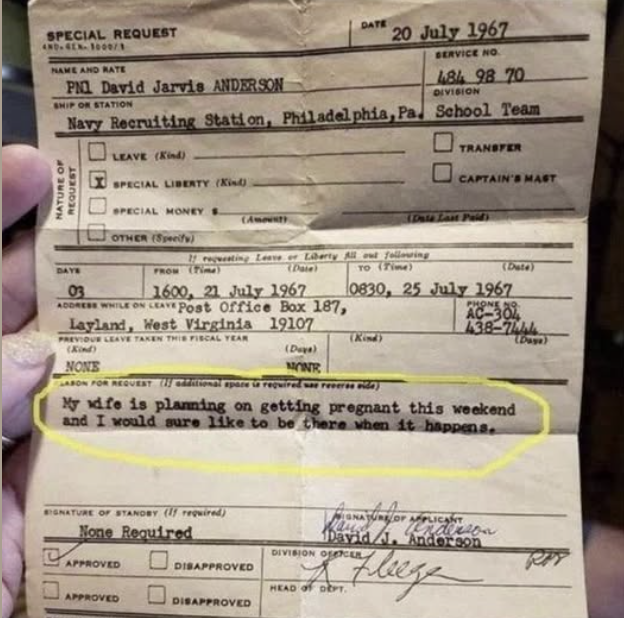 SPECIAL REQUEST
DATE 20 July 1967
NAME AND RATE
SERVICE NO.
PN1 David Jarvis ANDERSON
484 98 70
SHIP OR STATION
DIVISION
Navy Recruiting Station, Philadelphia, Pa. School Team
NATURE OF REQUEST
LEAVE (Kind)
TRANSFER
X SPECIAL LIBERTY (Kind)
CAPTAIN'S MAST
SPECIAL MONEY $
(Amount) (Date Last Paid)
OTHER (Specify)
If requesting Leave or Liberty fill out following
DAYS FROM (Time) (Date) TO (Time) (Date)
03 1600, 21 July 1967 0830, 25 July 1967
ADDRESS WHILE ON LEAVE Post Office Box 187,
PHONE NO.
AC-304
Layland, West Virginia 19107
438-7444
PREVIOUS LEAVE TAKEN THIS FISCAL YEAR
(Kind) (Days) (Kind) (Days)
NONE NONE
FOR REQUEST (If additional space is required use reverse side)
My wife is planning on getting pregnant this weekend
and I would sure like to be there when it happens.
SIGNATURE OF STANDBY (If required)
SIGNATURE OF APPLICANT
None Required
David J. Anderson
David J. Anderson
APPROVED DISAPPROVED
DIVISION OFFICER
APPROVED DISAPPROVED
HEAD OF DEPT.